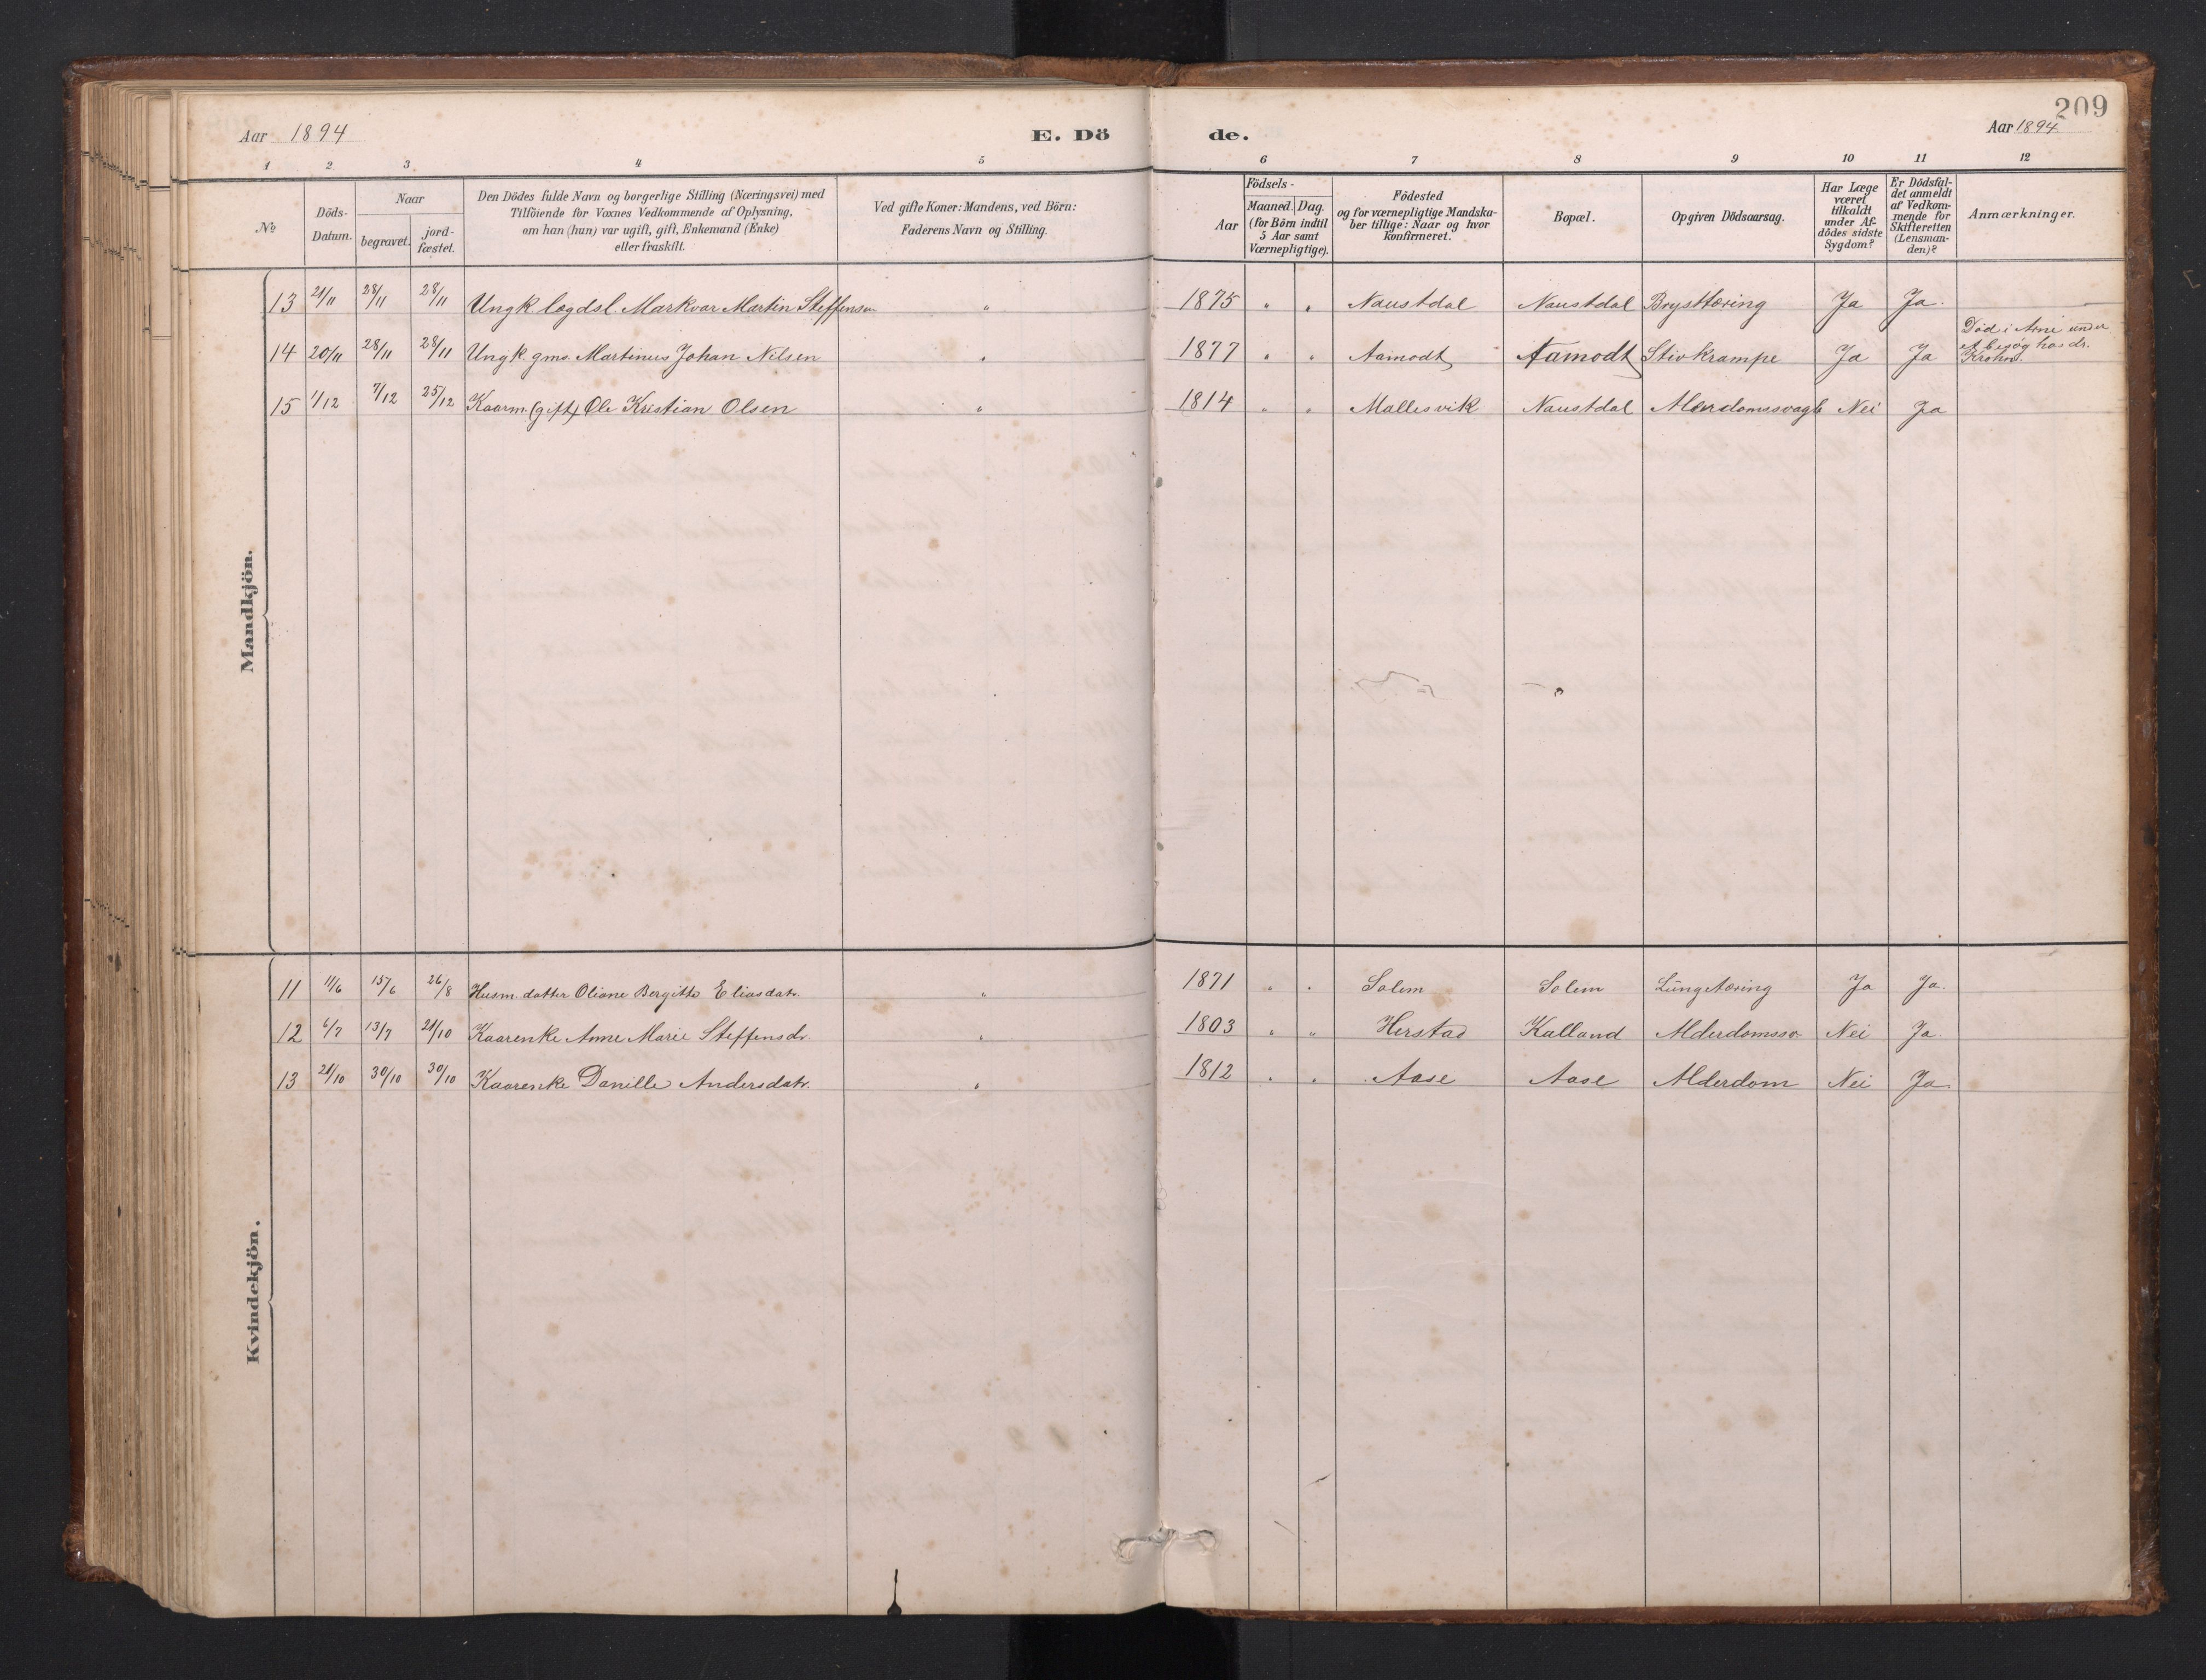 209
Aar 1894 E. Dö de. Aar 1894
1 2 3 4 5 6 7 8 9 10 11 12
No
Döds-Datum.
Naar
begravet.
jord-fæstet.
Den Dödes fulde Navn og borgerlige Stilling (Næringsvei) med
Tilföiende for Voxnes Vedkommende af Oplysning,
om han (hun) var ugift, gift, Enkemand (Enke)
eller fraskilt.
Ved gifte Koner: Mandens, ved Börn:
Faderens Navn og Stilling.
Födsels-
Aar
Maaned. Dag.
(for Börn indtil
5 Aar samt
Værnepligtige).
Födested
og for værnepligtige Mandska-
ber tillige: Naar og hvor
konfirmeret.
Bopæl.
Opgiven Dödsaarsag.
Har Læge
været
tilkaldt
under Af-
dödes sidste
Sygdom?
Er Dödsfal-
det anmeldt
af Vedkom-
mende for
Skifteretten
(Lensman-
den)?
Anmærkninger.
Mandkjön.
13 21/11 28/11 28/11 Ungk. lægdsl. Markvar Martin Steffensen " 1875 " " Naustdal Naustdal Brysttæring Ja Ja.
14 20/11 28/11 28/11 Ungk. gms. Martinus Johan Nilsen " 1877 " " Aamodt Aamodt Stivkrampe Ja Ja Död i Arne under
et besøg hos dr.
Krohn.
15 1/12 7/12 25/12 Kaarm. (gift) Ole Kristian Olsen " 1814 " " Mallesvik Naustdal Alderdomssvagh Nei Ja
Kvindekjön.
11 11/6 15/6 26/8 Husm. datter Oliane Bergitte Eliasdatr. " 1871 " " Solem Solem Lungetæring Ja Ja.
12 6/7 13/7 21/10 Kaarenke Anne Marie Steffensdr. " 1803 " " Herstad Kalland Alderdomssv. Nei Ja.
13 21/10 30/10 30/10 Kaarenke Danille Andersdatr. " 1812 " " Aase Aase Alderdom Nei Ja.